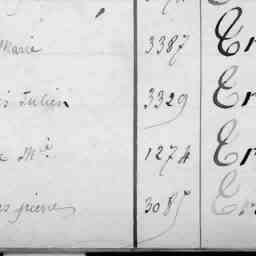 Marie 3387 Er
Julien 3329 Er
Mie 1274 Er
pierre 3085 Er